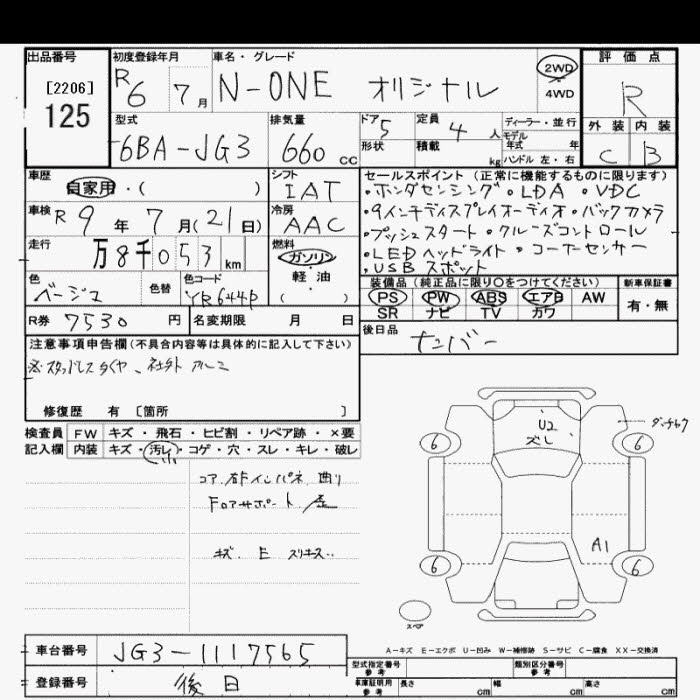 出品番号
[2206]
125
初度登録年月
R6 7月
車名・グレード
N-ONE オリジナル
2WD
・
4WD
評価点
R
外装 内装
C B
型式
6BA-JG3
排気量
660 cc
ドア 5
形状
定員 4 人
積載 kg
ディーラー・並行
モデル
年式 年
ハンドル 左・右
車歴
自家用・( )
シフト
IAT
車検 R 9年 7月(21日)
冷房
AAC
走行
万8千053 km
燃料
ガソリン
軽・油
( )
色
ベージュ
色替
色コード
YR644P
セールスポイント (正常に機能するものに限ります)
・ホンダセンシング・LDA・VDC
・9インチディスプレイオーディオ・バックカメラ
・プッシュスタート・クルーズコントロール
・LEDヘッドライト・コーナーセンサー
・USB スポット
装備品 (純正品に限り○をつけてください)
PS PW ABS エアB AW
SR ナビ TV カワ
新車保証書
有・無
R券 7530 円
名変期限 月 日
後日品
ナンバー
注意事項申告欄(不具合内容等は具体的に記入して下さい)
スタッドレスタイヤ、社外アルミ
修復歴 有 [箇所 ]
検査員
記入欄
FW キズ・飛石・ヒビ割・リペア跡・×要
内装 キズ・汚レ・コゲ・穴・スレ・キレ・破レ
コア、右Fインパネ 曲り
Fロアサポート 歪
キズ、E スリキズ
U2
ズレ
6
6
A1
6
6
スペア
A-キズ E-エクボ U-凹み W-補修跡 S-サビ C-腐食 XX-交換済
車台番号
JG3-1117565
登録番号
後日
型式指定番号
参考
類別区分番号
参考
車庫証明用
参考
長さ cm
幅 cm
高さ cm